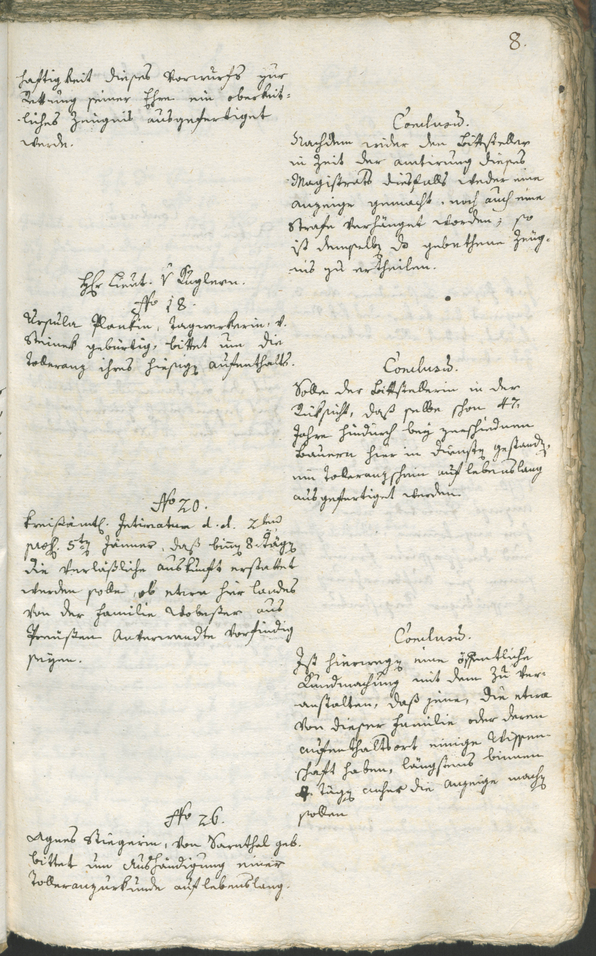 8.
haftigkeit dieses Vorwurfs zur
Rettung seiner Ehre ein oberkeit-
liches Zeugniß ausgefertiget
werde.
Conclusum.
Nachdem wider den Bittsteller
in Zeit der amtirung dieses
Magistrats diesfalls weder eine
Anzeige gemacht, noch auch eine
Strafe verhänget worden, so
ist demselben das gebethene Zeug-
nis zu ertheilen.
Hr Lieut. v Kuglern.
No 18.
Ursula Plonkin, Tagwerkerin, v.
gebürtig, bittet um die
Toleranz ihres hiesigen Aufenthalts.
Conclusum.
Solle der Bittstellerin in der
Rüksicht, daß selbe schon 47.
Jahre hindurch bey verschiedenen
Bauern hier in Diensten gestanden,
ein Toleranzschein auf lebenslang
ausgefertiget werden.
No 20.
Kreisämtl. Intimatum d. d. 2ten
præs. 5ten Jänner, daß binnen 8 Tägen
die verläßliche Auskunft erstattet
werden solle, ob etwa hier Landes
von der Familie aus
Preußen Anverwandte vorfindig
seyen.
Conclusum.
Ist hierwegen eine öffentliche
Kundmachung mit dem zu ver-
anstalten, daß jene, die etwa
von dieser Familie oder deren
aufenthaltsort einige Wissen-
schaft haben, längstens binnen
Tägen anher die Anzeige machen
sollen
No 26.
Agnes Stiegerin, von Sarnthal geb.
bittet um Aushändigung einer
Tolleranzurkunde auf lebenslang.